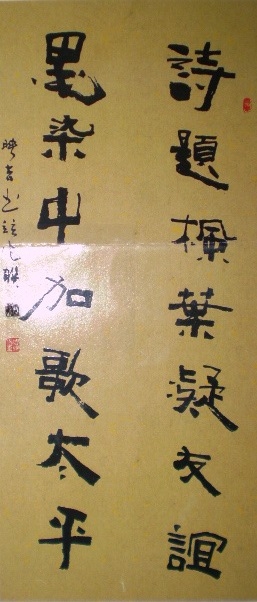 詩題楓葉凝友誼
墨染中加歌太平